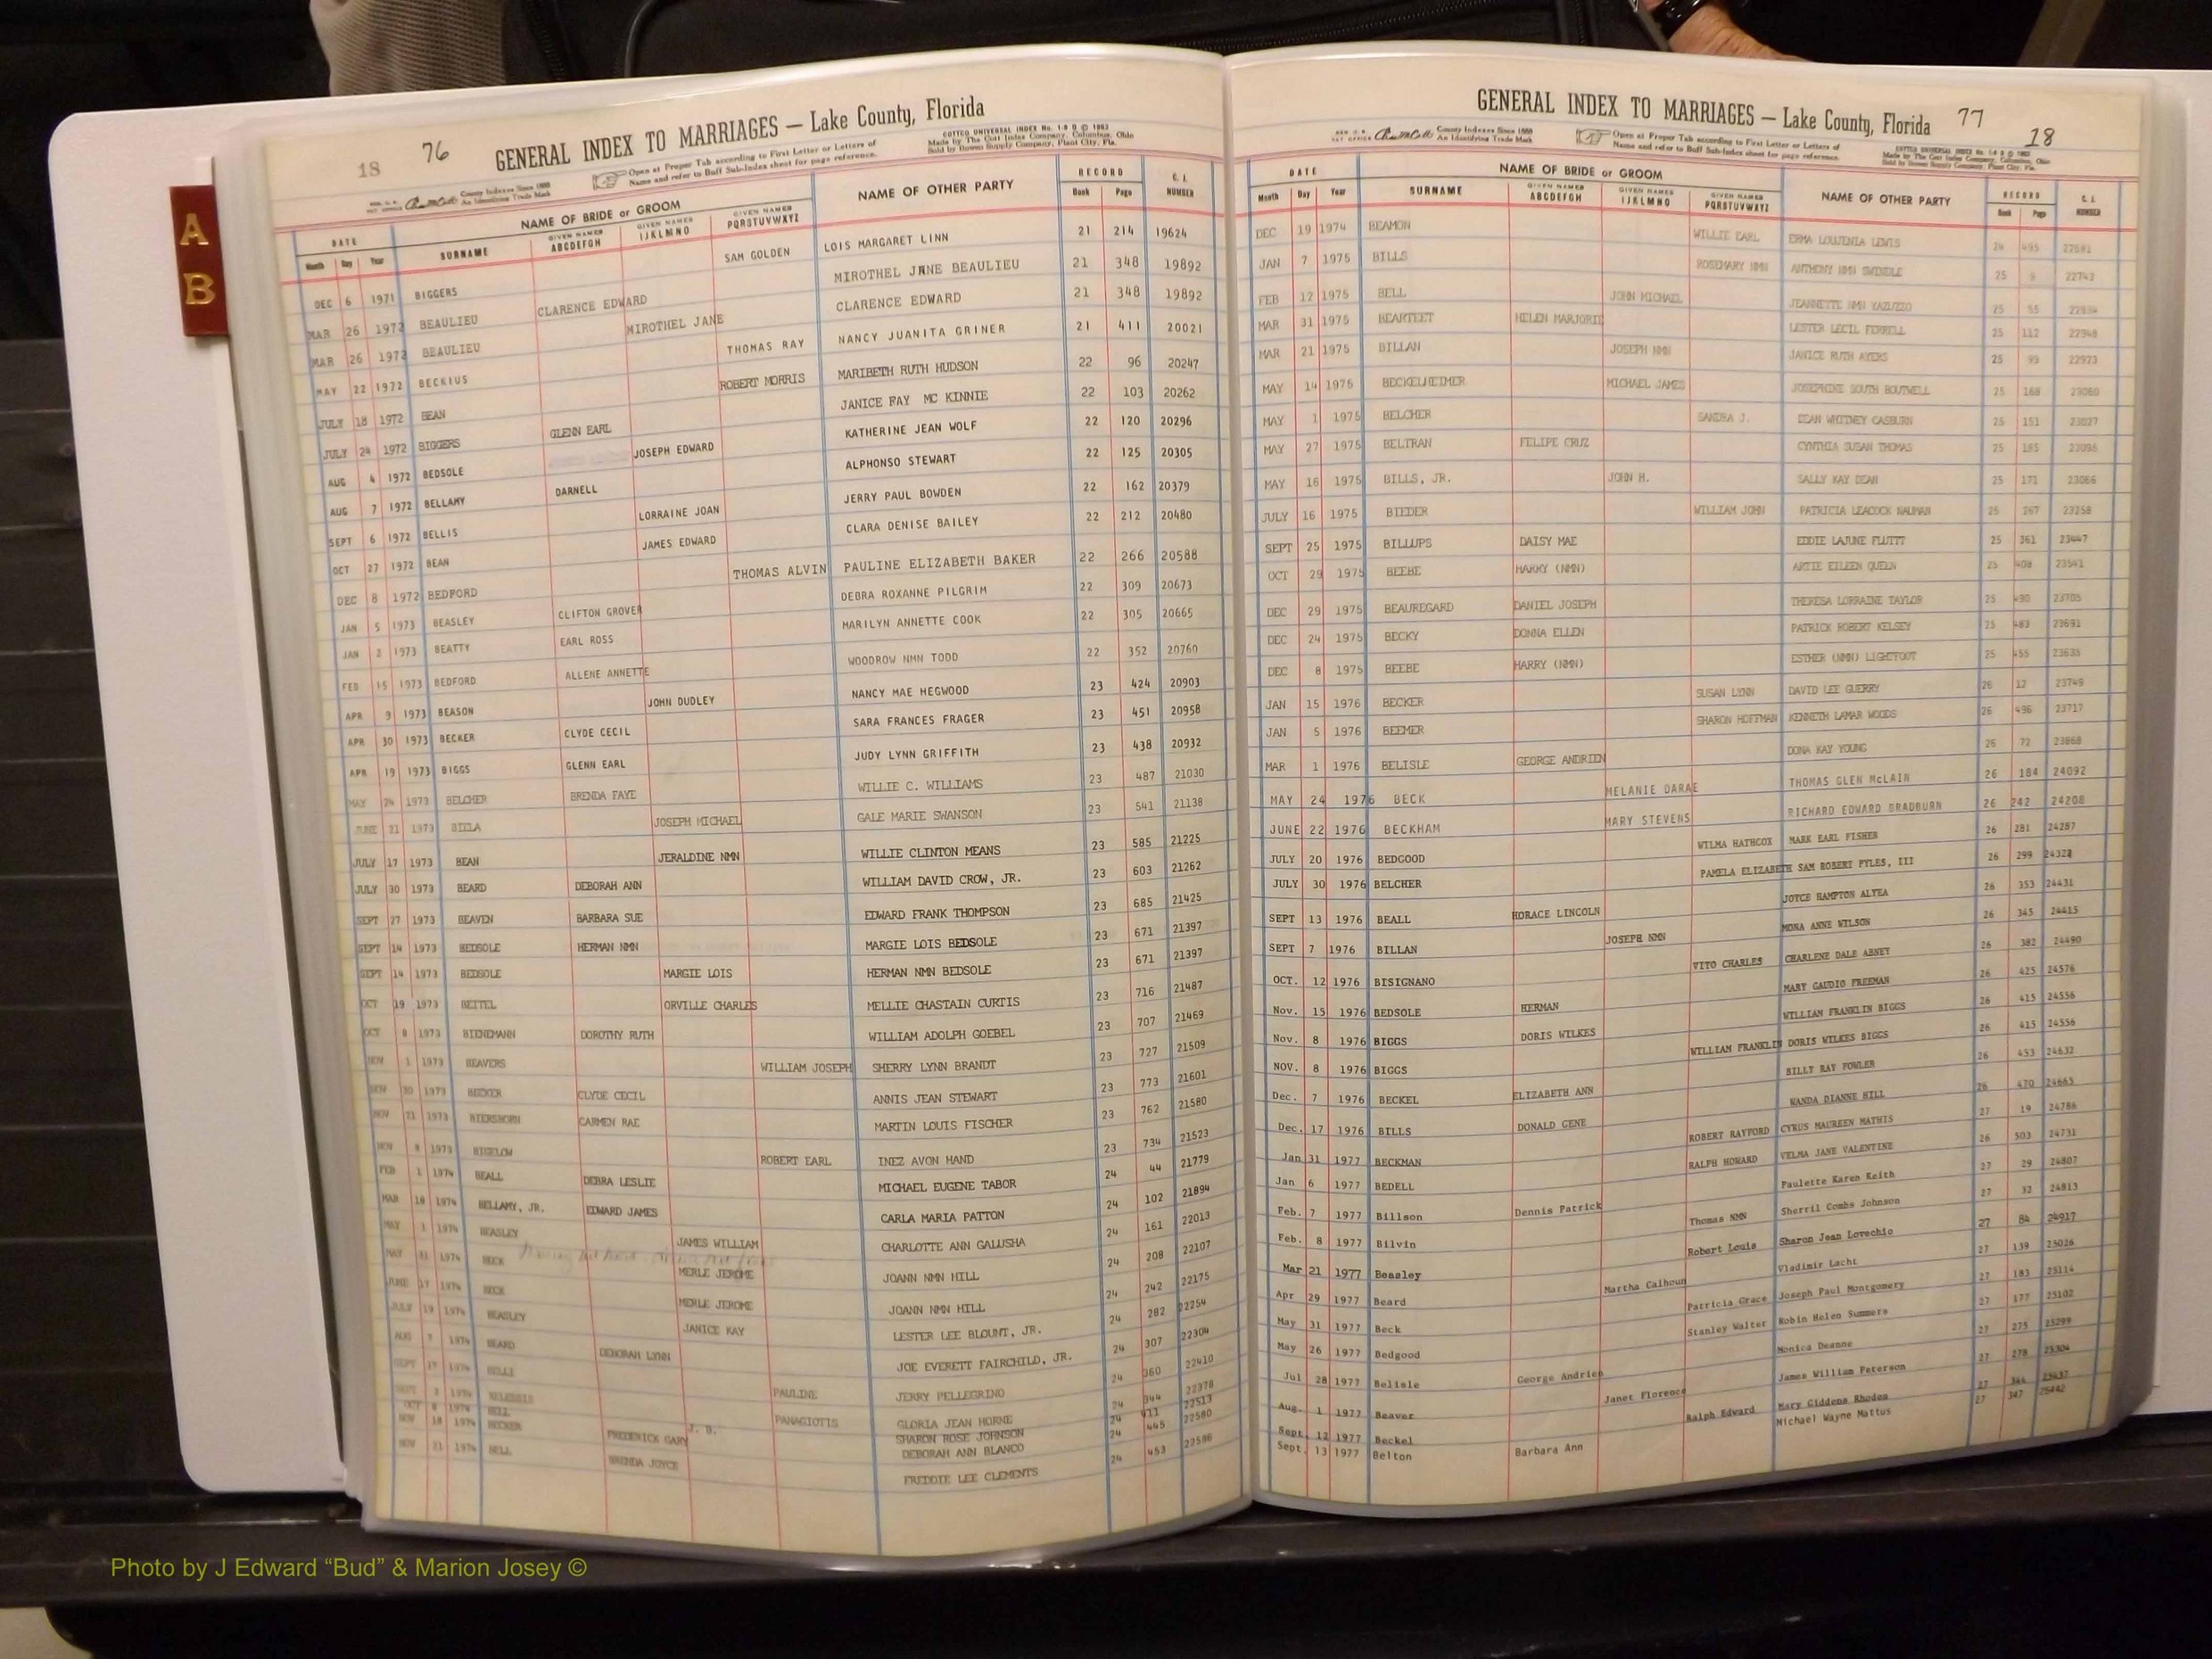 A
B
18
76
GENERAL INDEX TO MARRIAGES — Lake County, Florida
COTTCO UNIVERSAL INDEX No. 1-S D © 1963
Made by The Cott Index Company, Columbus, Ohio
Sold by Bowen Supply Company, Plant City, Fla.
County Indexes Since 1888
An Identifying Trade Mark
Open at Proper Tab according to First Letter or Letters of
Name and refer to Buff Sub-Index sheet for page reference.
DATE NAME OF BRIDE or GROOM NAME OF OTHER PARTY RECORD C. I.
Month Day Year SURNAME GIVEN NAMES ABCDEFGH GIVEN NAMES IJKLMNO GIVEN NAMES PQRSTUVWXYZ Book Page NUMBER
DEC 6 1971 BIGGERS SAM GOLDEN LOIS MARGARET LINN 21 214 19624
MAR 26 1972 BEAULIEU CLARENCE EDWARD MIROTHEL JANE BEAULIEU 21 348 19892
MAR 26 1972 BEAULIEU MIROTHEL JANE CLARENCE EDWARD 21 348 19892
MAY 22 1972 BECKIUS THOMAS RAY NANCY JUANITA GRINER 21 411 20021
JULY 18 1972 BEAN ROBERT MORRIS MARIBETH RUTH HUDSON 22 96 20247
JULY 24 1972 BIGGERS GLENN EARL JANICE FAY MC KINNIE 22 103 20262
AUG 4 1972 BEDSOLE JOSEPH EDWARD KATHERINE JEAN WOLF 22 120 20296
AUG 7 1972 BELLAMY DARNELL ALPHONSO STEWART 22 125 20305
SEPT 6 1972 BELLIS LORRAINE JOAN JERRY PAUL BOWDEN 22 162 20379
OCT 27 1972 BEAN JAMES EDWARD CLARA DENISE BAILEY 22 212 20480
DEC 8 1972 BEDFORD THOMAS ALVIN PAULINE ELIZABETH BAKER 22 266 20588
JAN 5 1973 BEASLEY CLIFTON GROVER DEBRA ROXANNE PILGRIM 22 309 20673
JAN 2 1973 BEATTY EARL ROSS MARILYN ANNETTE COOK 22 305 20665
FEB 15 1973 BEDFORD ALLENE ANNETTE WOODROW NMN TODD 22 352 20760
APR 9 1973 BEASON JOHN DUDLEY NANCY MAE HEGWOOD 23 424 20903
APR 30 1973 BECKER CLYDE CECIL SARA FRANCES FRAGER 23 451 20958
APR 19 1973 BIGGS GLENN EARL JUDY LYNN GRIFFITH 23 438 20932
MAY 24 1973 BELCHER BRENDA FAYE WILLIE C. WILLIAMS 23 487 21030
JUNE 21 1973 BIELA JOSEPH MICHAEL GALE MARIE SWANSON 23 541 21138
JULY 17 1973 BEAN JERALDINE NMN WILLIE CLINTON MEANS 23 585 21225
JULY 30 1973 BEARD DEBORAH ANN WILLIAM DAVID CROW, JR. 23 603 21262
SEPT 27 1973 BEAVEN BARBARA SUE EDWARD FRANK THOMPSON 23 685 21425
SEPT 14 1973 BEDSOLE HERMAN NMN MARGIE LOIS BEDSOLE 23 671 21397
SEPT 14 1973 BEDSOLE MARGIE LOIS HERMAN NMN BEDSOLE 23 671 21397
OCT 19 1973 BEITEL ORVILLE CHARLES MELLIE CHASTAIN CURTIS 23 716 21487
OCT 8 1973 BIENEMANN DOROTHY RUTH WILLIAM ADOLPH GOEBEL 23 707 21469
NOV 1 1973 BEAVERS WILLIAM JOSEPH SHERRY LYNN BRANDT 23 727 21509
NOV 30 1973 BECKER CLYDE CECIL ANNIS JEAN STEWART 23 773 21601
NOV 21 1973 BIERSHORN CARMEN RAE MARTIN LOUIS FISCHER 23 762 21580
NOV 8 1973 BIGELOW ROBERT EARL INEZ AVON HAND 23 734 21523
FEB 1 1974 BEALL DEBRA LESLIE MICHAEL EUGENE TABOR 24 44 21779
MAR 18 1974 BELLAMY, JR. EDWARD JAMES CARLA MARIA PATTON 24 102 21894
MAY 1 1974 BEASLEY JAMES WILLIAM CHARLOTTE ANN GALUSHA 24 161 22013
MAY 31 1974 BECK MERLE JEROME JOANN NMN HILL 24 208 22107
JUNE 17 1974 BECK MERLE JEROME JOANN NMN HILL 24 242 22175
JULY 19 1974 BEASLEY JANICE KAY LESTER LEE BLOUNT, JR. 24 282 22254
AUG 7 1974 BEARD DEBORAH LYNN JOE EVERETT FAIRCHILD, JR. 24 307 22304
SEPT 1974 PAULINE JERRY PELLEGRINO 24 360 22410
SEPT 3 1974 PANAGIOTIS GLORIA JEAN HORNE 24 344 22378
OCT 8 1974 BELL J. B. SHARON ROSE JOHNSON 24 411 22513
NOV 18 1974 BECKER FREDERICK GARY DEBORAH ANN BLANCO 24 445 22580
NOV 21 1974 BELL BRENDA JOYCE FREDDIE LEE CLEMENTS 24 453 22596
GENERAL INDEX TO MARRIAGES — Lake County, Florida
77
18
County Indexes Since 1888
An Identifying Trade Mark
Open at Proper Tab according to First Letter or Letters of
Name and refer to Buff Sub-Index sheet for page reference.
DATE NAME OF BRIDE or GROOM NAME OF OTHER PARTY RECORD C. I.
Month Day Year SURNAME GIVEN NAMES ABCDEFGH GIVEN NAMES IJKLMNO GIVEN NAMES PQRSTUVWXYZ Book Page NUMBER
DEC 19 1974 BEAMON WILLIE EARL ERMA LOUVENIA LEWIS 24 495
JAN 7 1975 BILLS ROSEMARY NMN ANTHONY NMN SWINDLE 25 9 22743
FEB 12 1975 BELL JOHN MICHAEL JEANNETTE NMN YAZUZZO 25 55 22834
MAR 31 1975 BEARTEET HELEN MARJORIE LESTER LECIL FERRELL 25 112 22948
MAR 21 1975 BILLAN JOSEPH NMN JANICE RUTH AYERS 25 99 22923
MAY 14 1975 BECKELHEIMER MICHAEL JAMES JOSEPHINE SOUTH BOUTWELL 25 168 23060
MAY 1 1975 BELCHER SANDRA J. DEAN WHITNEY CASBURN 25 151 23027
MAY 27 1975 BELTRAN FELIPE CRUZ CYNTHIA SUSAN THOMAS 25 185 23095
MAY 16 1975 BILLS, JR. JOHN H. SALLY KAY DEAN 25 171 23066
JULY 16 1975 BIEDER WILLIAM JOHN PATRICIA LEACOCK NAUMAN 25 267 23258
SEPT 25 1975 BILLUPS DAISY MAE EDDIE LAJUNE FLUITT 25 361 23447
OCT 29 1975 BEEBE HARRY (NMN) ARTIE EILEEN QUEEN 25 408 23541
DEC 29 1975 BEAUREGARD DANIEL JOSEPH THERESA LORRAINE TAYLOR 25 490 23705
DEC 24 1975 BECKY DONNA ELLEN PATRICK ROBERT KELSEY 25 483 23691
DEC 8 1975 BEEBE HARRY (NMN) ESTHER (NMN) LIGHTFOOT 25 455 23635
JAN 15 1976 BECKER SUSAN LYNN DAVID LEE GUERRY 26 12 23749
JAN 5 1976 BEEMER SHARON HOFFMAN KENNETH LAMAR WOODS 26 496 23717
MAR 1 1976 BELISLE GEORGE ANDRIEN DONA KAY YOUNG 26 72 23868
MAY 24 1976 BECK MELANIE DARAE THOMAS GLEN McLAIN 26 184 24092
JUNE 22 1976 BECKHAM MARY STEVENS RICHARD EDWARD BRADBURN 26 242 24208
JULY 20 1976 BEDGOOD WILMA HATHCOX MARK EARL FISHER 26 281 24287
JULY 30 1976 BELCHER PAMELA ELIZABETH SAM ROBERT PYLES, III 26 299 24322
SEPT 13 1976 BEALL HORACE LINCOLN JOYCE HAMPTON ALYEA 26 353 24431
SEPT 7 1976 BILLAN JOSEPH NMN MONA ANNE WILSON 26 345 24415
OCT. 12 1976 BISIGNANO VITO CHARLES CHARLENE DALE ABNEY 26 382 24490
Nov. 15 1976 BEDSOLE HERMAN MARY GAUDIO FREEMAN 26 425 24576
Nov. 8 1976 BIGGS DORIS WILKES WILLIAM FRANKLIN BIGGS 26 415 24556
NOV. 8 1976 BIGGS WILLIAM FRANKLIN DORIS WILKES BIGGS 26 415 24556
Dec. 7 1976 BECKEL ELIZABETH ANN BILLY RAY FOWLER 26 453 24632
Dec. 17 1976 BILLS DONALD GENE WANDA DIANNE HILL 26 470 24665
Jan 31 1977 BECKMAN ROBERT RAYFORD CYRUS MAUREEN MATHIS 27 19 24786
Jan 6 1977 BEDELL RALPH HOWARD VELMA JANE VALENTINE 26 503 24731
Feb. 7 1977 Billson Dennis Patrick Paulette Karen Keith 27 29 24807
Feb. 8 1977 Bilvin Thomas NMN Sherril Combs Johnson 27 32 24813
Mar 21 1977 Beasley Robert Louis Sharon Jean Lovechio 27 84 24917
Apr 29 1977 Beard Martha Calhoun Vladimir Lacht 27 139 25026
May 31 1977 Beck Patricia Grace Joseph Paul Montgomery 27 183 25114
May 26 1977 Bedgood Stanley Walter Robin Helen Summers 27 177 25102
Jul 28 1977 Belisle George Andrien Monica Deanne 27 275 25299
Aug. 1 1977 Beaver Janet Florence James William Peterson 27 278 25304
Sept. 12 1977 Beckel Ralph Edward Mary Giddens Rhoden 27 344 25437
Sept. 13 1977 Belton Barbara Ann Michael Wayne Mattus 27 347 25442
Photo by J Edward “Bud” & Marion Josey ©